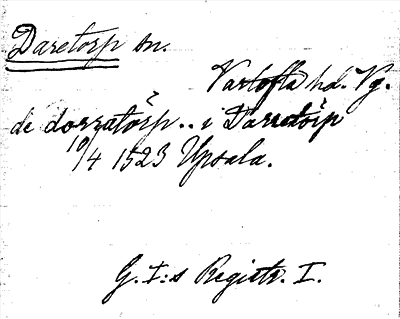 Daretorp sn.
Vartofta hd. Vg.
de dorzatörp.. i Darretörp
10/4 1523 Upsala.
G. I:s Registr. I.